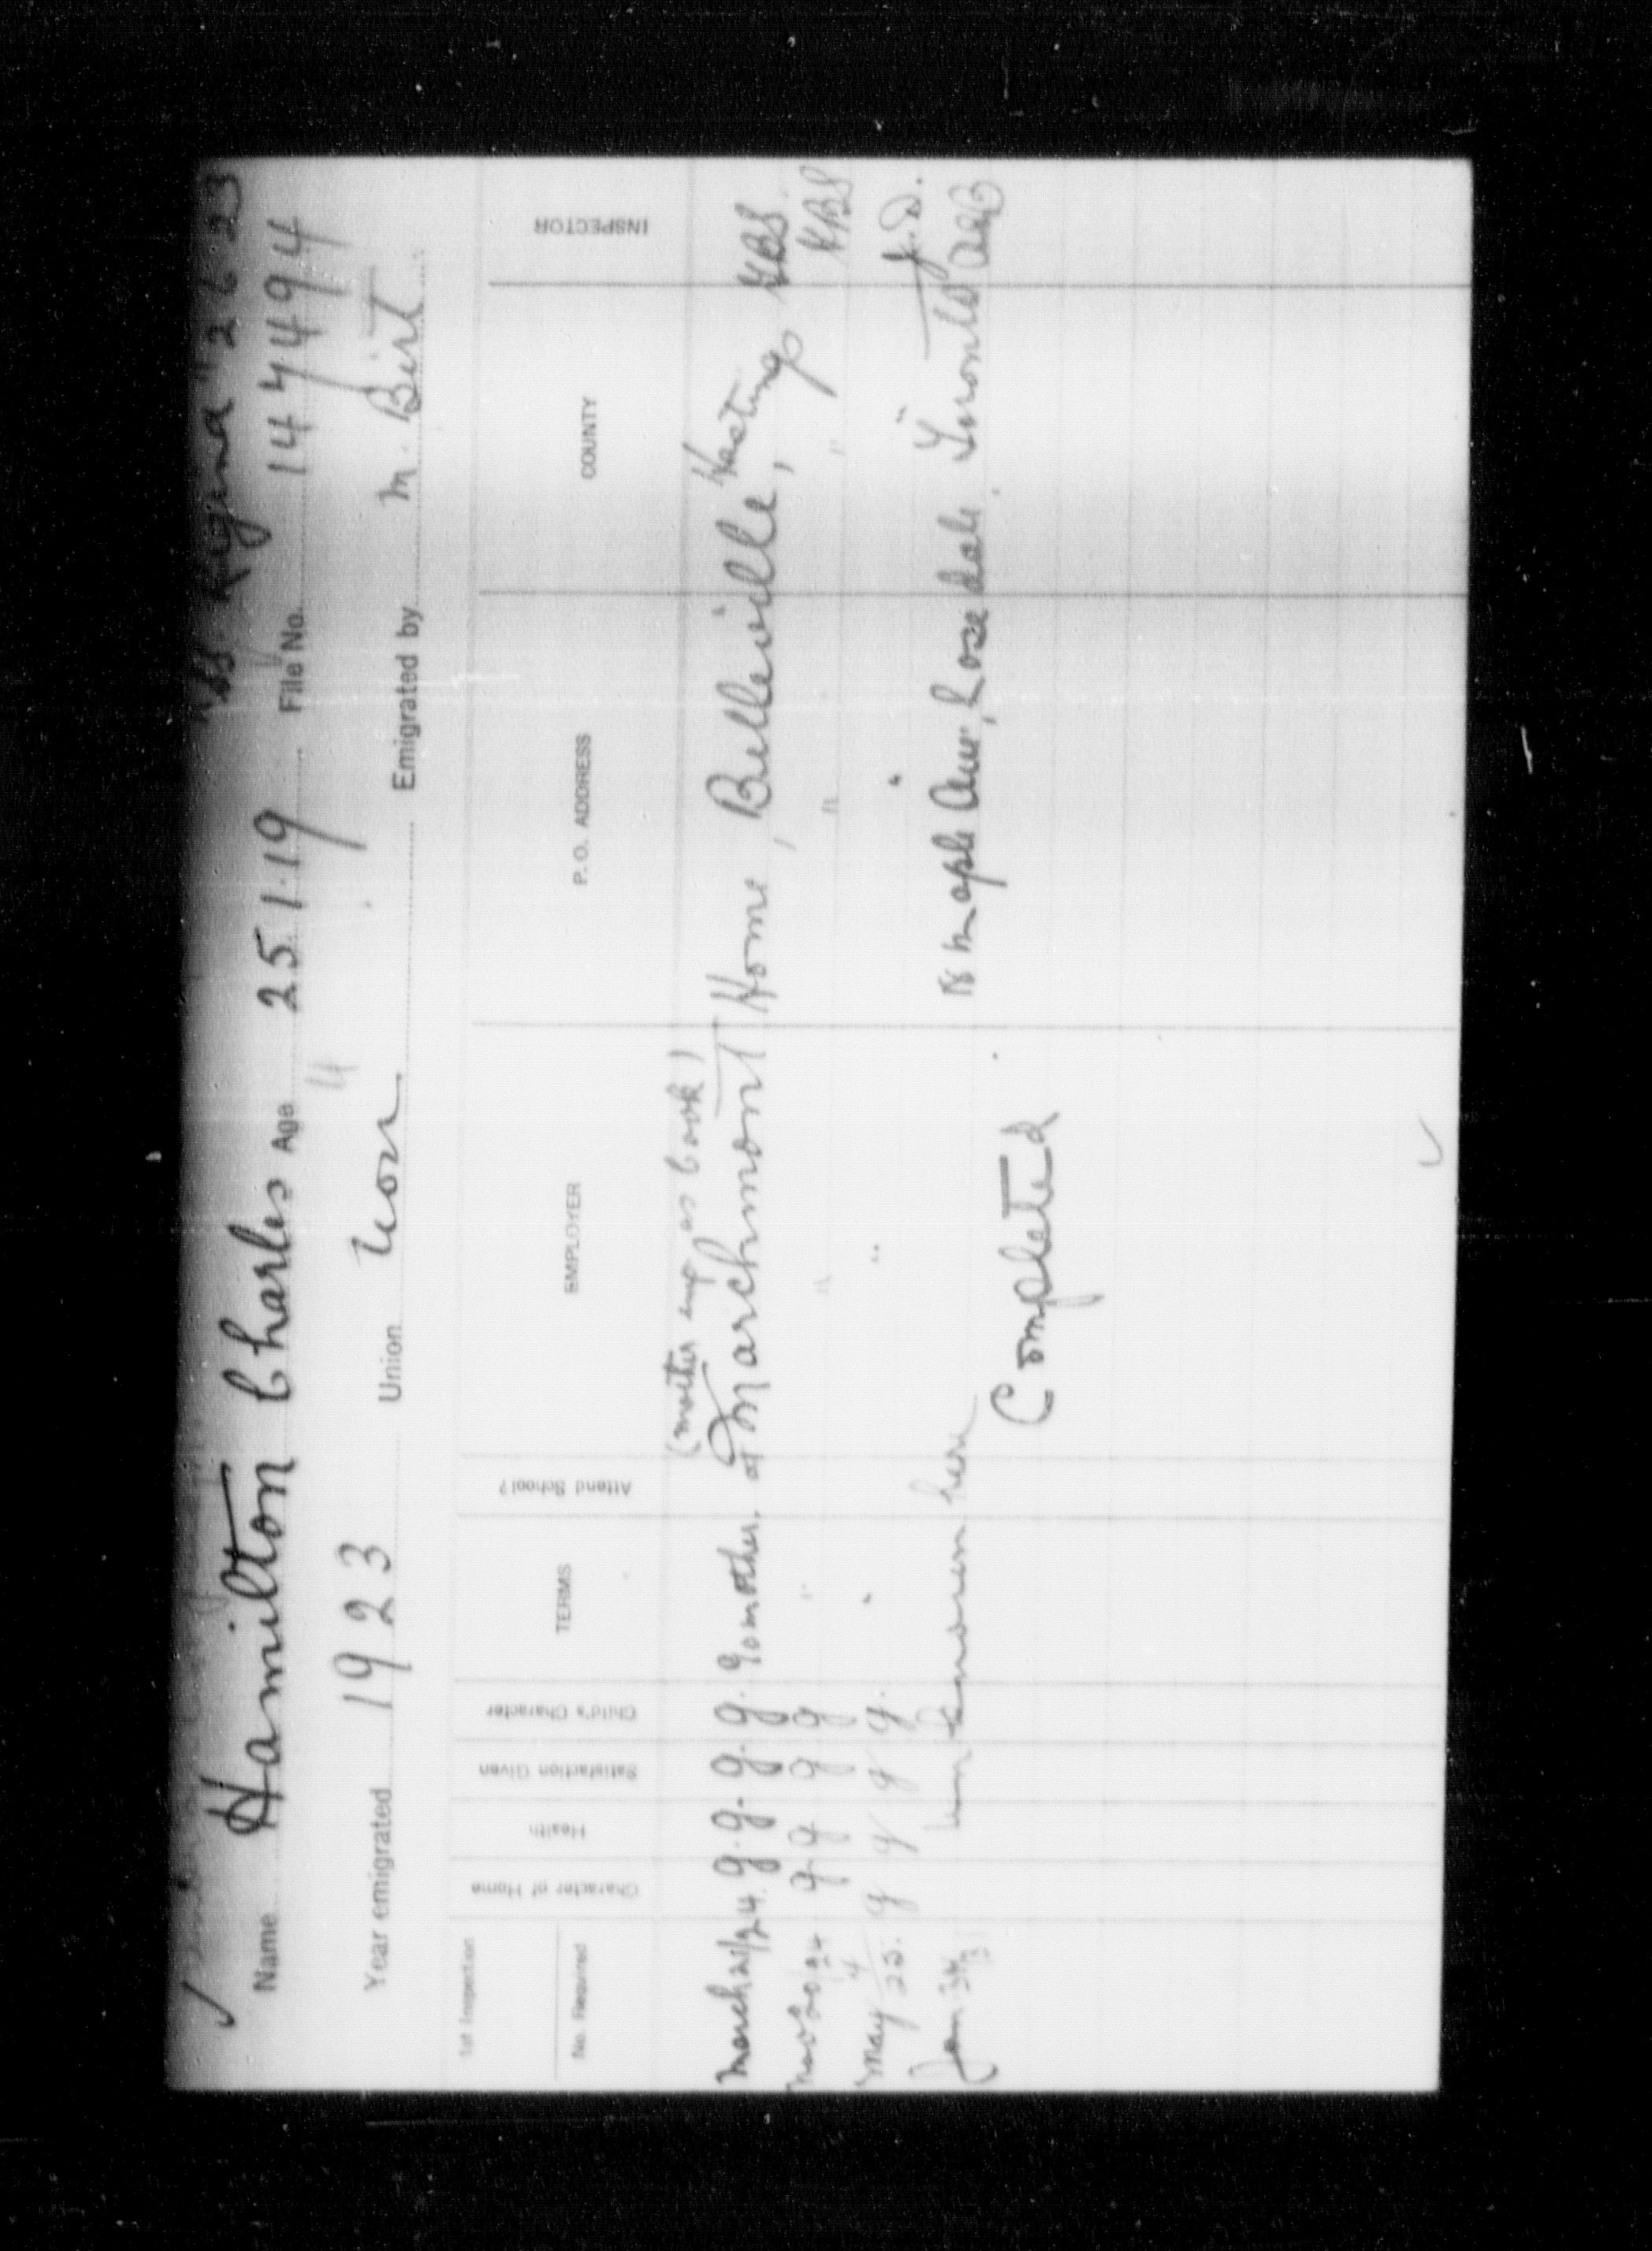 SS. Regina " 2 6 23
Name Hamilton Charles Age 25.1.19 File No. 144494
4
Year emigrated 1923 Union Non Emigrated by M. Birt
1st Inspection
No. Required
Character of Home Health Satisfaction Given Child's Character TERMS Attend School? EMPLOYER P. O. ADDRESS COUNTY INSPECTOR
(mother emp as cook)
March 21/24 g. g. g. g. To mother. at Marchmont Home, Belleville, Hastings GBS.
Nov 20 24 g g g g " " " " KBS
May 4/25. g g g g. " " " " J.D.
Jan 31 unknown here 18 Maple Ave, Rosedale Toronto
Completed